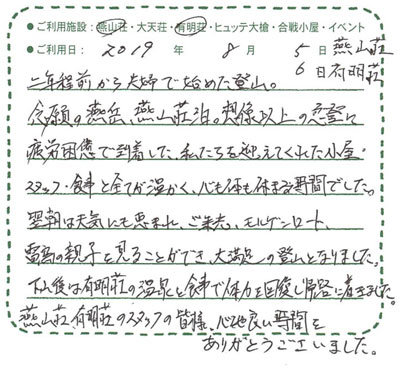 ●ご利用施設：燕山荘・大天荘・有明荘・ヒュッテ大槍・合戦小屋・イベント
●ご利用日：2019年8月5日燕山荘
6日有明荘
二年程前から夫婦で始めた登山。
念願の燕岳、燕山荘泊。想像以上の
疲労困憊で到着した、私たちを迎えてくれた小屋・
スタッフ・食事と全てが温かく、心も体も休まる時間でした。
翌朝は天気にも恵まれ、ご来光、モルゲンロート、
雷鳥の親子を見ることができ、大満足の登山となりました。
下山後は有明荘の温泉と食事で体力を回復し帰路に着きました。
燕山荘、有明荘のスタッフの皆様、心地良い時間を
ありがとうございました。